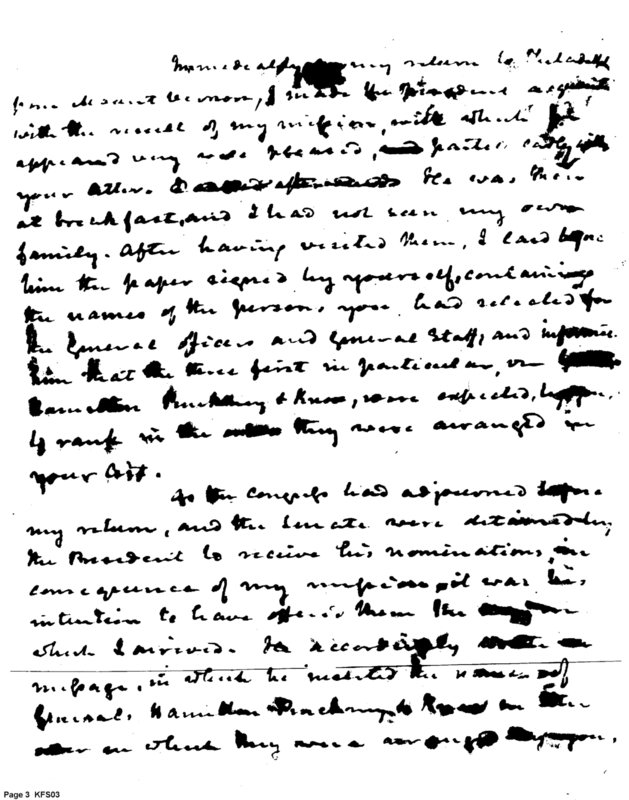 my return to Philadelph
from Mount Vernon, I made the President acquainted
with the result of my mission, with which he
appeared very well pleased, parted
your letter. He was then
at breakfast, and I had not seen my own
family. After having visited them, I laid before
him the paper signed by yourself, containing
the names of the persons you had selected for
the General officers and General Staff, and informed
him that the three first in particular, viz
Hamilton Pinckney & Knox, were expected, by you,
to rank in the they were arranged in
your list.
As the Congress had adjourned before
my return, and the Senate were detained by
the President to receive his nominations, in
consequence of my mission, it was his
intention to have offered them the
which I arrived. He accordingly wrote a
message, in which he inserted the names of
Generals Hamilton Pinckney & Knox in the
order in which they were arranged by you.
Page 3 KFS03